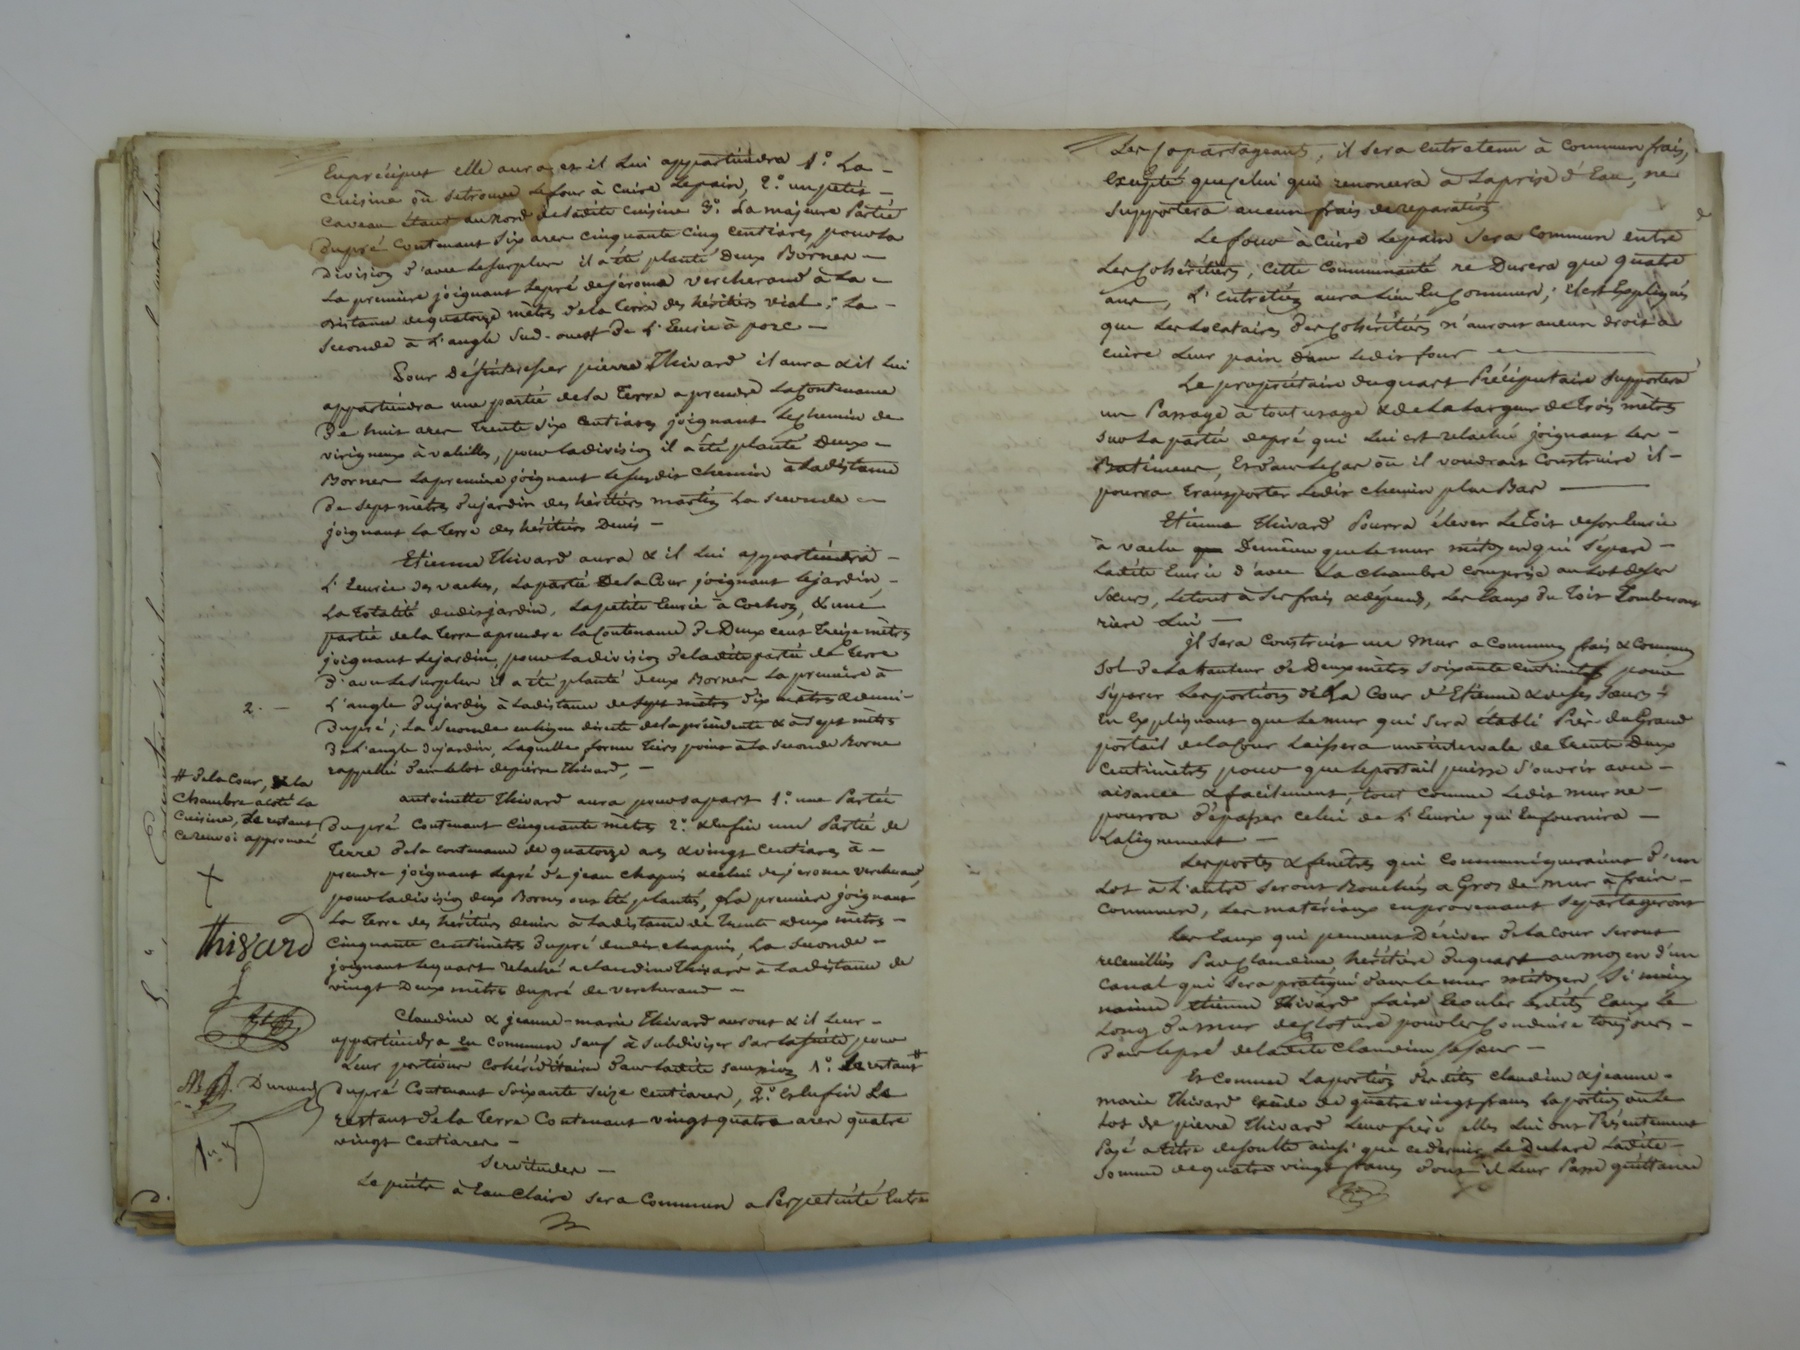 En préciput elle aura et il lui appartiendra 1.° La
Cuisine où se trouve le four à cuire le pain, 2.° un petit
caveau étant au nord de ladite cuisine 3.° la majeure Partie
du pré contenant six ares cinquante cinq centiares pour la
Division d'avec le surplus il a été planté deux Bornes
La première joignant le pré de jérome vercherand à la
distance de quatorze mètres de la terre des héritiers vial; la
seconde à l'angle sud-ouest de l'Eurie à porc
Pour Désintéresser pierre Thivard il aura & il lui
appartiendra une partie de la Terre a prendre la Contenance
De huit ares trente six Centiares joignant le chemin de
virigneux à valeilles, pour la division il a été planté Deux
Bornes la première joignant le susdit chemin à la distance
De sept mètres du jardin des héritiers martin la seconde
joignant la Terre des héritiers Denis
Etienne Thivard aura & il lui appartiendra
L'Eurie des vaches, la partie De la Cour joignant le jardin,
La Totalité dudit jardin, la petite Eurie à Cochon, & une
partie de la Terre a prendre la Contenance de Deux cent Treize mètres
joignant le jardin, pour la division de ladite partie de Terre
D'avec le surplus il a été planté deux Bornes la première à
2.
L'angle du jardin à la distance de sept mètres dix mètres & demi
Du pré; La seconde en ligne directe de la précédente & à sept mètres
De l'angle du jardin, laquelle forme tiers point à la seconde Borne
rappellée dans le lot de pierre Thivard,
# De la Cour, de la
Chambre à côté la
Cuisine, le restant
ce renvoi approuvé
Thivard
Durand
antoinette Thivard aura pour sa part 1.° une Partie
Du pré contenant Cinquante mètres 2.° & Enfin une Partie de
Terre De la contenance de quatorze ares & vingt Centiares à
prendre joignant le pré de jean Chapuis & celui de jerome vercherand,
pour la division deux Bornes ont été plantés, La première joignant
La Terre des héritiers denis à la distance de Trente Deux mètres
Cinquante Centimètres du pré dudit chapuis, La seconde
joignant le quart relaché a claudine Thivard à la distance de
vingt Deux mètres du pré de vercherand
Claudine & jeanne-marie Thivard auront & il leur
appartiendra en commun sauf à subdiviser Par la suite pour
Leur portions Cohéréditaires dans ladite succession 1.° Le restant #
Du pré Contenant Soixante Seize Centiares, 2.° Et Enfin Le
restant de la Terre Contenant vingt quatre ares quatre
vingt Centiares
Servitudes
Le puits à Eau Claire sera Commun a Perpétuité Entre
Les Copartageants, il sera entretenu à Commun frais,
Excepté que celui qui renoncera à la prise d'Eau, ne
Supportera aucun frais de réparation
Le four à Cuire le pain sera commun entre
Les Cohéritiers, Cette Communauté ne Durera que quatre
ans, L'Entretien aura lieu En Commun; il est Expliqué
que les locataires des Cohéritiers n'auront aucun droit à
cuire leur pain dans ledit four
Le propriétaire du quart Préciputaire supportera
un Passage à tout usage & de la largeur de Trois mètres
sur la partie de pré qui lui est relaché joignant les
Batimens, Et dans le Cas où il voudrait Construire il
pourra transporter ledit chemin plus Bas
Etienne Thivard Pourra élever le Toit de son Eurie
à vache Demême que le mur mitoyen qui Sépare
Ladite Eurie d'avec La Chambre comprise au lot de ses
Sœurs, le tout à ses frais & dépens, Les Eaux du Toit Tomberont
rière Lui
jl sera Construit un Mur a Commun frais & Commun
Sol de la Hauteur de Deux mètres Soixante Centimètres pour
Séparer Les portions de La Cour d'Etienne & de ses Sœurs;
En Expliquant que le mur qui sera établi Près du Grand
portail de la Cour laissera un intervale de Trente Deux
Centimètres pour que le portail puisse S'ouvrir avec
aisance & facilement, tout comme ledit mur ne
pourra Dépasser celui de L'Eurie qui En fournira
L'alignement
Les portes & fenêtres qui Communiqueraient d'un
Lot à L'autre seront Bouchées a Gros de mur à frais
Commun, Les matériaux en provenant se partageront
Les Eaux qui peuvent Dériver De la Cour seront
recueillies Par Claudine, héritière du quart au moyen d'un
Canal qui sera pratiqué dans le mur mitoyen, Si mieux
n'aime Etienne Thivard faire Ecouler lesdites Eaux le
Long du mur de Cloture pour les Conduire toujours
Dans le pré de ladite Claudine sa sœur
Et Comme La portion desdites Claudine & jeanne-
marie Thivard Excède de quatre vingt francs la portion ou le
Lot de pierre Thivard Leur frère elles Lui ont Présentement
Payé a titre de soulte ainsi que ce dernier Le Déclare Ladite
Somme de quatre vingt francs Dont il Leur Passe quittance